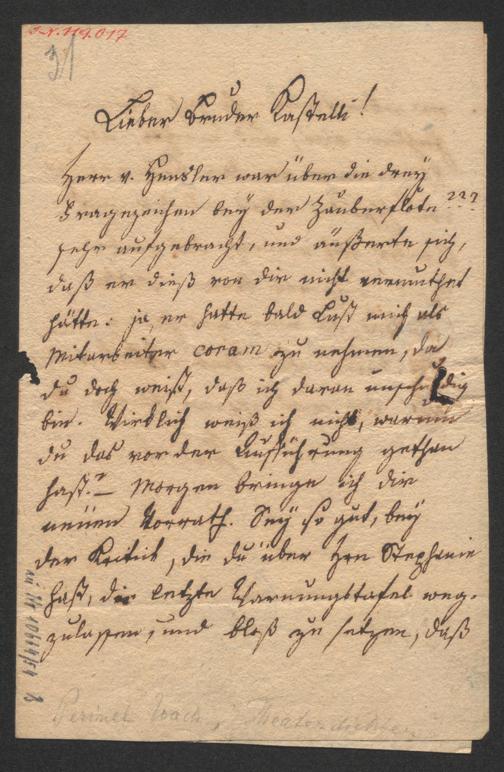 I.N. 114.017
31
Lieber Bruder Kastelli!
Herr v. Hensler war über die drey
Fragezeichen bey der Zauberflöte ???
sehr aufgebracht, und äußerte sich,
daß er dieß von dir nicht vermuthet
hätte: ja, er hatte bald Lust mich als
Mitarbeiter coram zu nehmen, da
du doch weißt, daß ich daran unschuldig
bin. Wirklich weiß ich nicht, warum
du das vor der Aufführung gethan
hast? – Morgen bringe ich dir
neuen Vorrath. Sey so gut, bey
der Kritik, die du über Hrn Stephanie
hast, die letzte Warnungstafel weg-
zulassen, und bloß zu setzen, daß
Perinet Joach., Theaterdichter